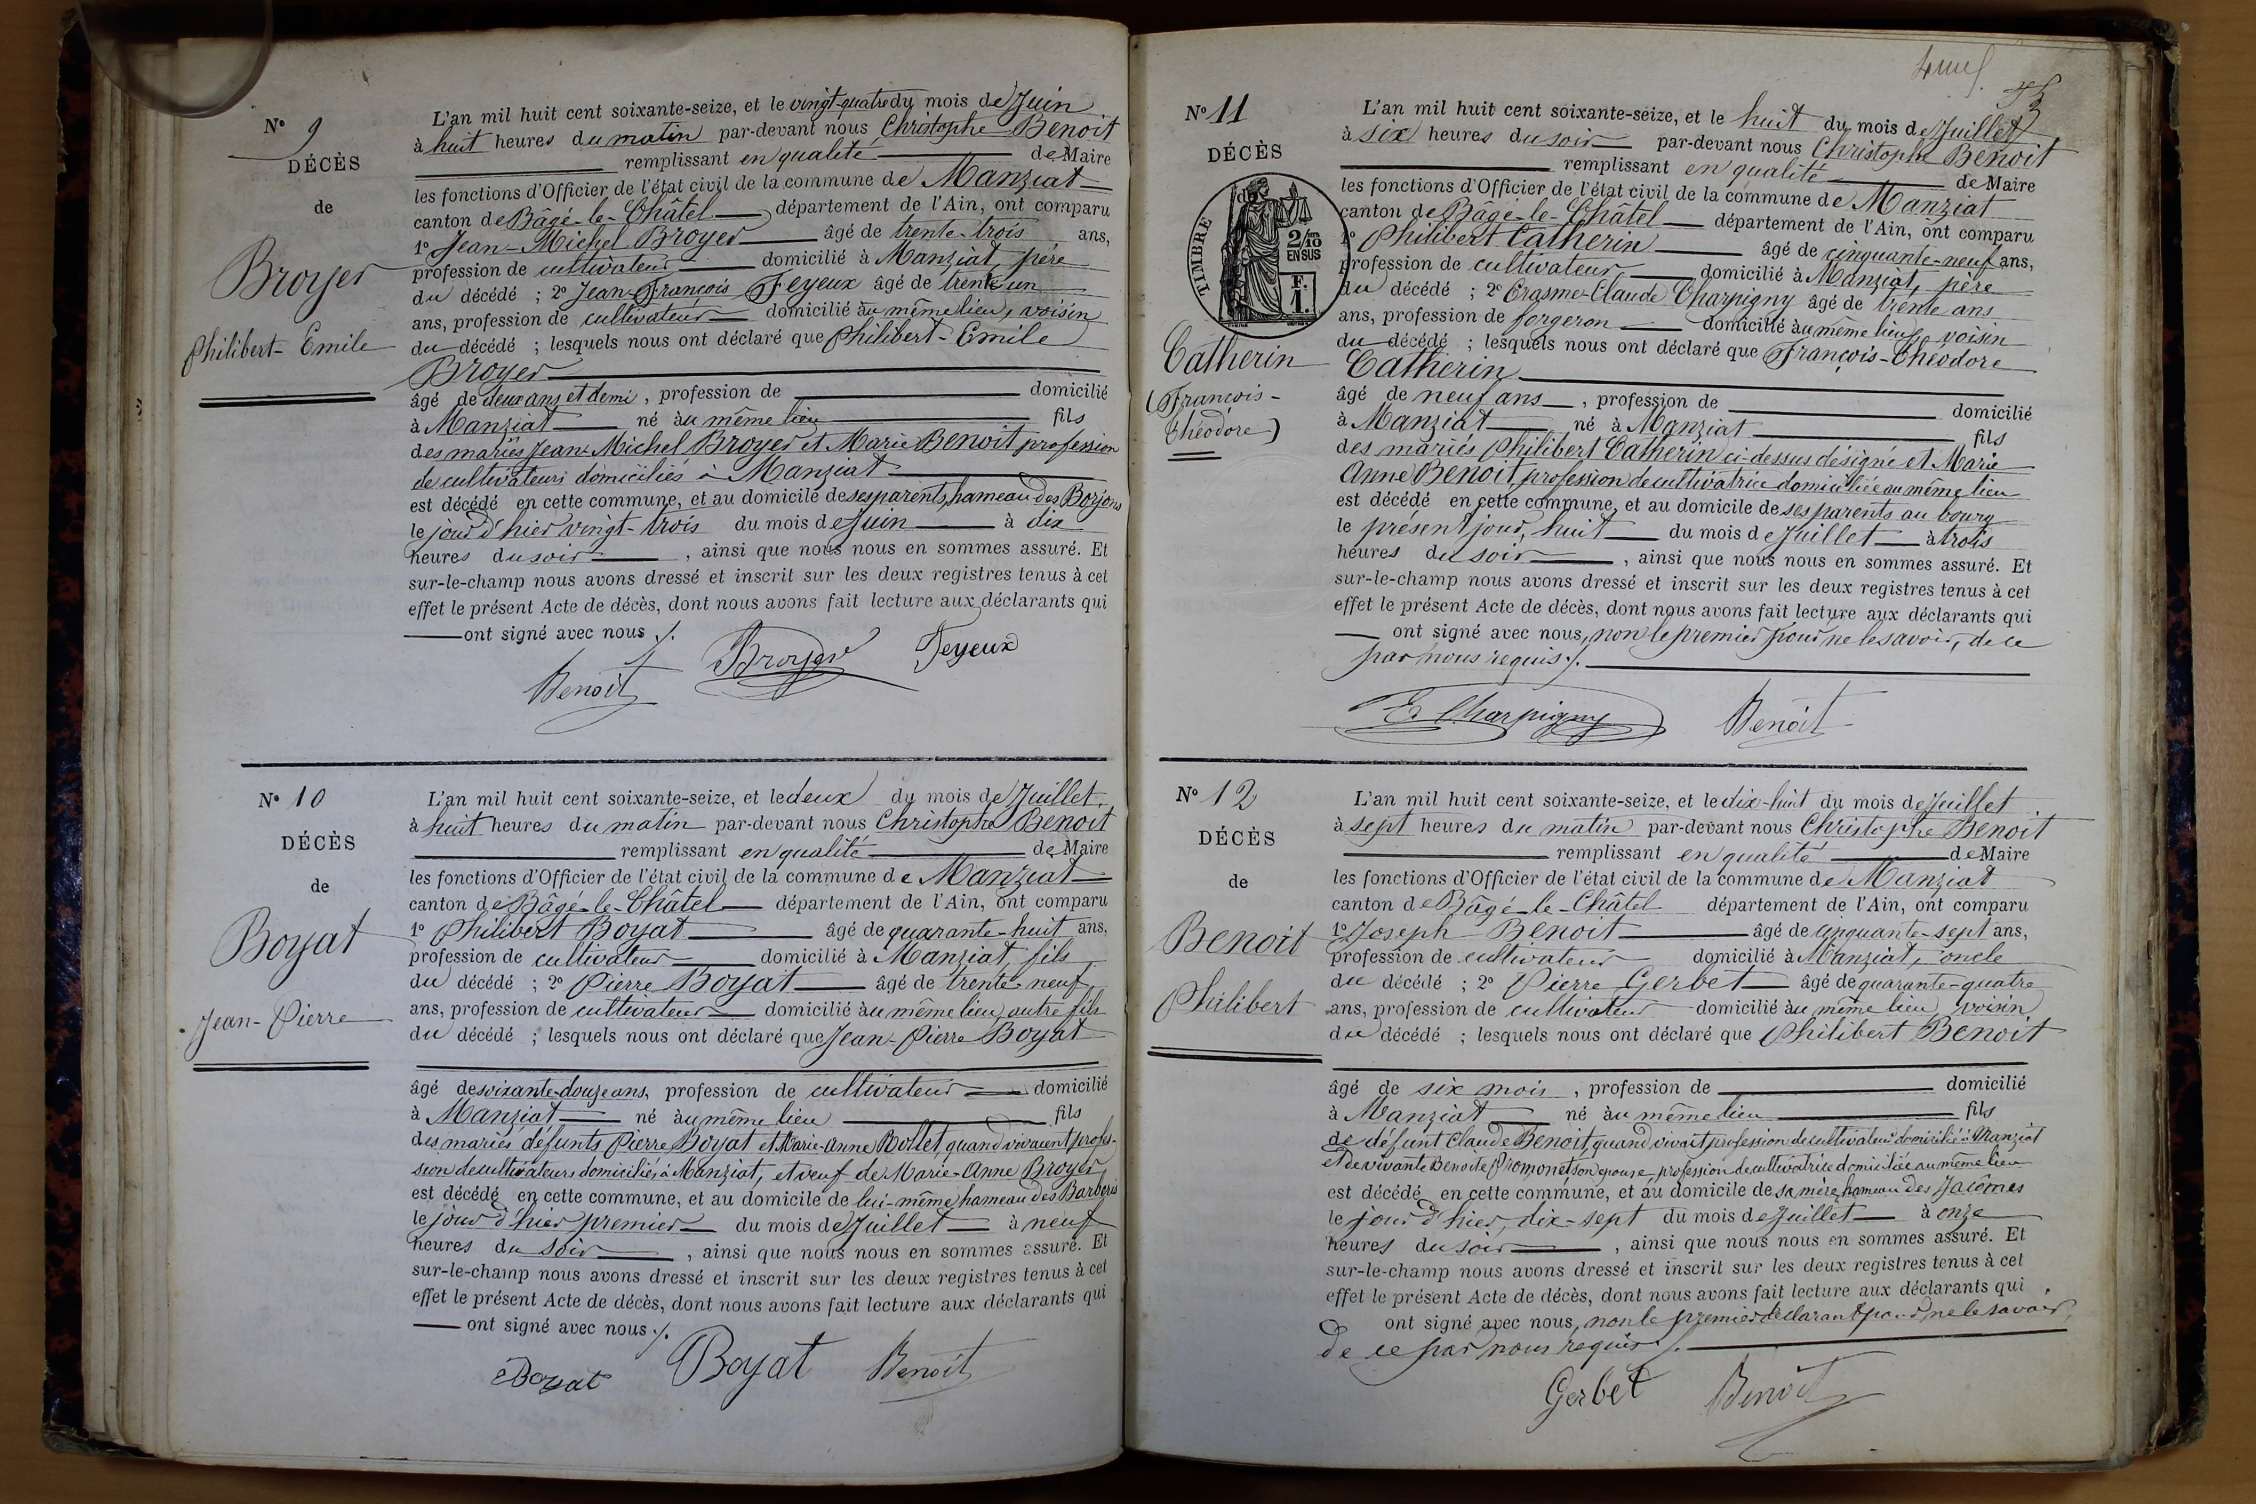 N° 9
DÉCÈS
de
Broyer
Philibert-Emile
L'an mil huit cent soixante-seize, et le vingt-quatre du mois de Juin
à huit heures du matin par-devant nous Christophe Benoit
remplissant en qualité de Maire
les fonctions d'Officier de l'état civil de la commune de Manziat
canton de Bâgé-le-Châtel département de l'Ain, ont comparu
1° Jean-Michel Broyer âgé de trente-trois ans,
profession de cultivateur domicilié à Manziat, père
du décédé ; 2° Jean-François Feyeux âgé de trente un
ans, profession de cultivateur domicilié au même lieu, voisin
du décédé ; lesquels nous ont déclaré que Philibert-Emile
Broyer
âgé de deux ans et demi, profession de domicilié
à Manziat né au même lieu fils
des mariés Jean-Michel Broyer et Marie Benoit profession
de cultivateurs domiciliés à Manziat
est décédé en cette commune, et au domicile de ses parents, hameau des Borjons
le jour d'hier vingt-trois du mois de Juin à dix
heures du soir , ainsi que nous nous en sommes assuré. Et
sur-le-champ nous avons dressé et inscrit sur les deux registres tenus à cet
effet le présent Acte de décès, dont nous avons fait lecture aux déclarants qui
ont signé avec nous ./.
Benoit Broyer Feyeux
N° 10
DÉCÈS
de
Boyat
Jean-Pierre
L'an mil huit cent soixante-seize, et le deux du mois de Juillet
à huit heures du matin par-devant nous Christophe Benoit
remplissant en qualité de Maire
les fonctions d'Officier de l'état civil de la commune de Manziat
canton de Bâgé-le-Châtel département de l'Ain, ont comparu
1° Philibert Boyat âgé de quarante-huit ans,
profession de cultivateur domicilié à Manziat, fils
du décédé ; 2° Pierre Boyat âgé de trente-neuf
ans, profession de cultivateur domicilié au même lieu, autre fils
du décédé ; lesquels nous ont déclaré que Jean-Pierre Boyat
âgé de soixante-douze ans, profession de cultivateur domicilié
à Manziat né au même lieu fils
des mariés défunts Pierre Boyat et Marie-Anne Bollet, quand vivaient profes-
sion de cultivateurs domiciliés à Manziat, et veuf de Marie-Anne Broyer
est décédé en cette commune, et au domicile de lui-même hameau des Barberis
le jour d'hier premier du mois de Juillet à neuf
heures du soir , ainsi que nous nous en sommes assuré. Et
sur-le-champ nous avons dressé et inscrit sur les deux registres tenus à cet
effet le présent Acte de décès, dont nous avons fait lecture aux déclarants qui
ont signé avec nous ./.
Boyat Boyat Benoit
N° 11
DÉCÈS
de
TIMBRE
2/10
EN SUS
F.
1.
Catherin
(François-
Théodore)
L'an mil huit cent soixante-seize, et le huit du mois de Juillet
à six heures du soir par-devant nous Christophe Benoit
remplissant en qualité de Maire
les fonctions d'Officier de l'état civil de la commune de Manziat
canton de Bâgé-le-Châtel département de l'Ain, ont comparu
1° Philibert Catherin âgé de cinquante-neuf ans,
profession de cultivateur domicilié à Manziat, père
du décédé ; 2° Erasme-Claude Charpigny âgé de trente ans
ans, profession de forgeron domicilié au même lieu, voisin
du décédé ; lesquels nous ont déclaré que François-Théodore
Catherin
âgé de neuf ans, profession de domicilié
à Manziat né à Manziat fils
des mariés Philibert Catherin ci-dessus désigné et Marie
Anne Benoit, profession de cultivatrice domiciliée au même lieu
est décédé en cette commune, et au domicile de ses parents au bourg
le présent jour, huit du mois de Juillet à trois
heures du soir , ainsi que nous nous en sommes assuré. Et
sur-le-champ nous avons dressé et inscrit sur les deux registres tenus à cet
effet le présent Acte de décès, dont nous avons fait lecture aux déclarants qui
ont signé avec nous, non le premier pour ne le savoir, de ce
par nous requis ./.
E. Charpigny Benoit
N° 12
DÉCÈS
de
Benoit
Philibert
L'an mil huit cent soixante-seize, et le dix-huit du mois de Juillet
à sept heures du matin par-devant nous Christophe Benoit
remplissant en qualité de Maire
les fonctions d'Officier de l'état civil de la commune de Manziat
canton de Bâgé-le-Châtel département de l'Ain, ont comparu
1° Joseph Benoit âgé de cinquante-sept ans,
profession de cultivateur domicilié à Manziat, oncle
du décédé ; 2° Pierre Gerbet âgé de quarante-quatre
ans, profession de cultivateur domicilié au même lieu, voisin
du décédé ; lesquels nous ont déclaré que Philibert Benoit
âgé de six mois, profession de domicilié
à Manziat né au même lieu fils
de défunt Claude Benoit, quand vivait profession de cultivateur domicilié à Manziat
et de vivante Benoite Promonet son épouse, profession de cultivatrice domiciliée au même lieu
est décédé en cette commune, et au domicile de sa mère, hameau des Jacômes
le jour d'hier, dix-sept du mois de Juillet à onze
heures du soir , ainsi que nous nous en sommes assuré. Et
sur-le-champ nous avons dressé et inscrit sur les deux registres tenus à cet
effet le présent Acte de décès, dont nous avons fait lecture aux déclarants qui
ont signé avec nous, non le premier déclarant pour ne le savoir,
de ce par nous requis ./.
Gerbet Benoit